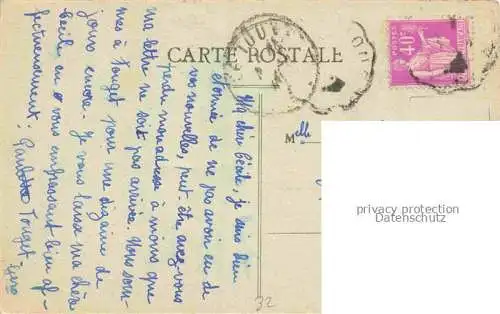 CARTE POSTALE
Ma chère Cécile, je suis bien
étonnée de ne pas avoir eu de
vos nouvelles, peut-être avez-vous
perdu mon adresse à moins que
ma lettre ne soit pas arrivée. Nous som-
mes à Touget pour une dizaine de
jours encore. Je vous laisse ma chère
Cécile en vous embrassant bien af-
fectueusement.
Paulette Touget
Gers
Mlle
40c
32
privacy protection
Datenschutz